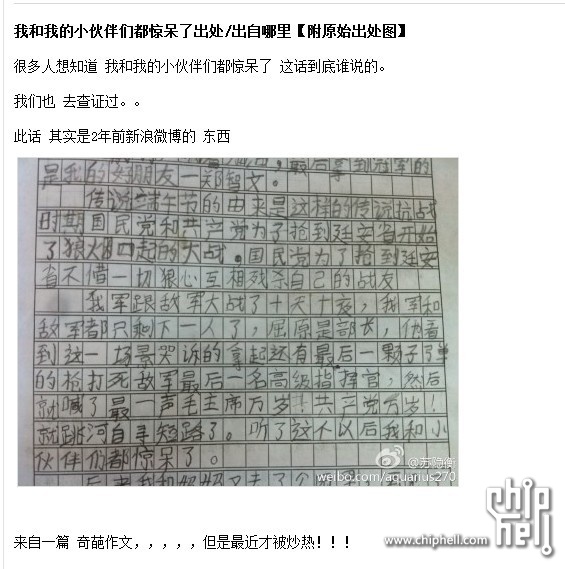 我和我的小伙伴们都惊呆了出处/出自哪里【附原始出处图】
很多人想知道 我和我的小伙伴们都惊呆了 这话到底谁说的。
我们也 去查证过。。
此话 其实是2年前新浪微博的 东西
最后拿到冠军的
是我的好朋友一郑智文。
传说端午节的由来是这样的传说抗战
时期国民党和共产党为了抢到延安省开始
了狼火四起的大战。国民党为了抢到延安
省不惜一切狠心互相残杀自己的战友
我军跟敌军大战了十天十夜，我军和
敌军都只剩下一人了，屈原是部长，他看
到这一场景哭诉的拿起还有最后一颗子弹
的枪打死敌军最后一名高级指挥官，然后
就喊了最一声毛主席万岁！共产党万岁！
就跳河自寻短路了。听了这个以后我和小
伙伴们都惊呆了。
@苏隐衡
weibo.com/aquarius270
chip
hell
www.chiphell.com
来自一篇 奇葩作文，，，，，但是最近才被炒热！！！